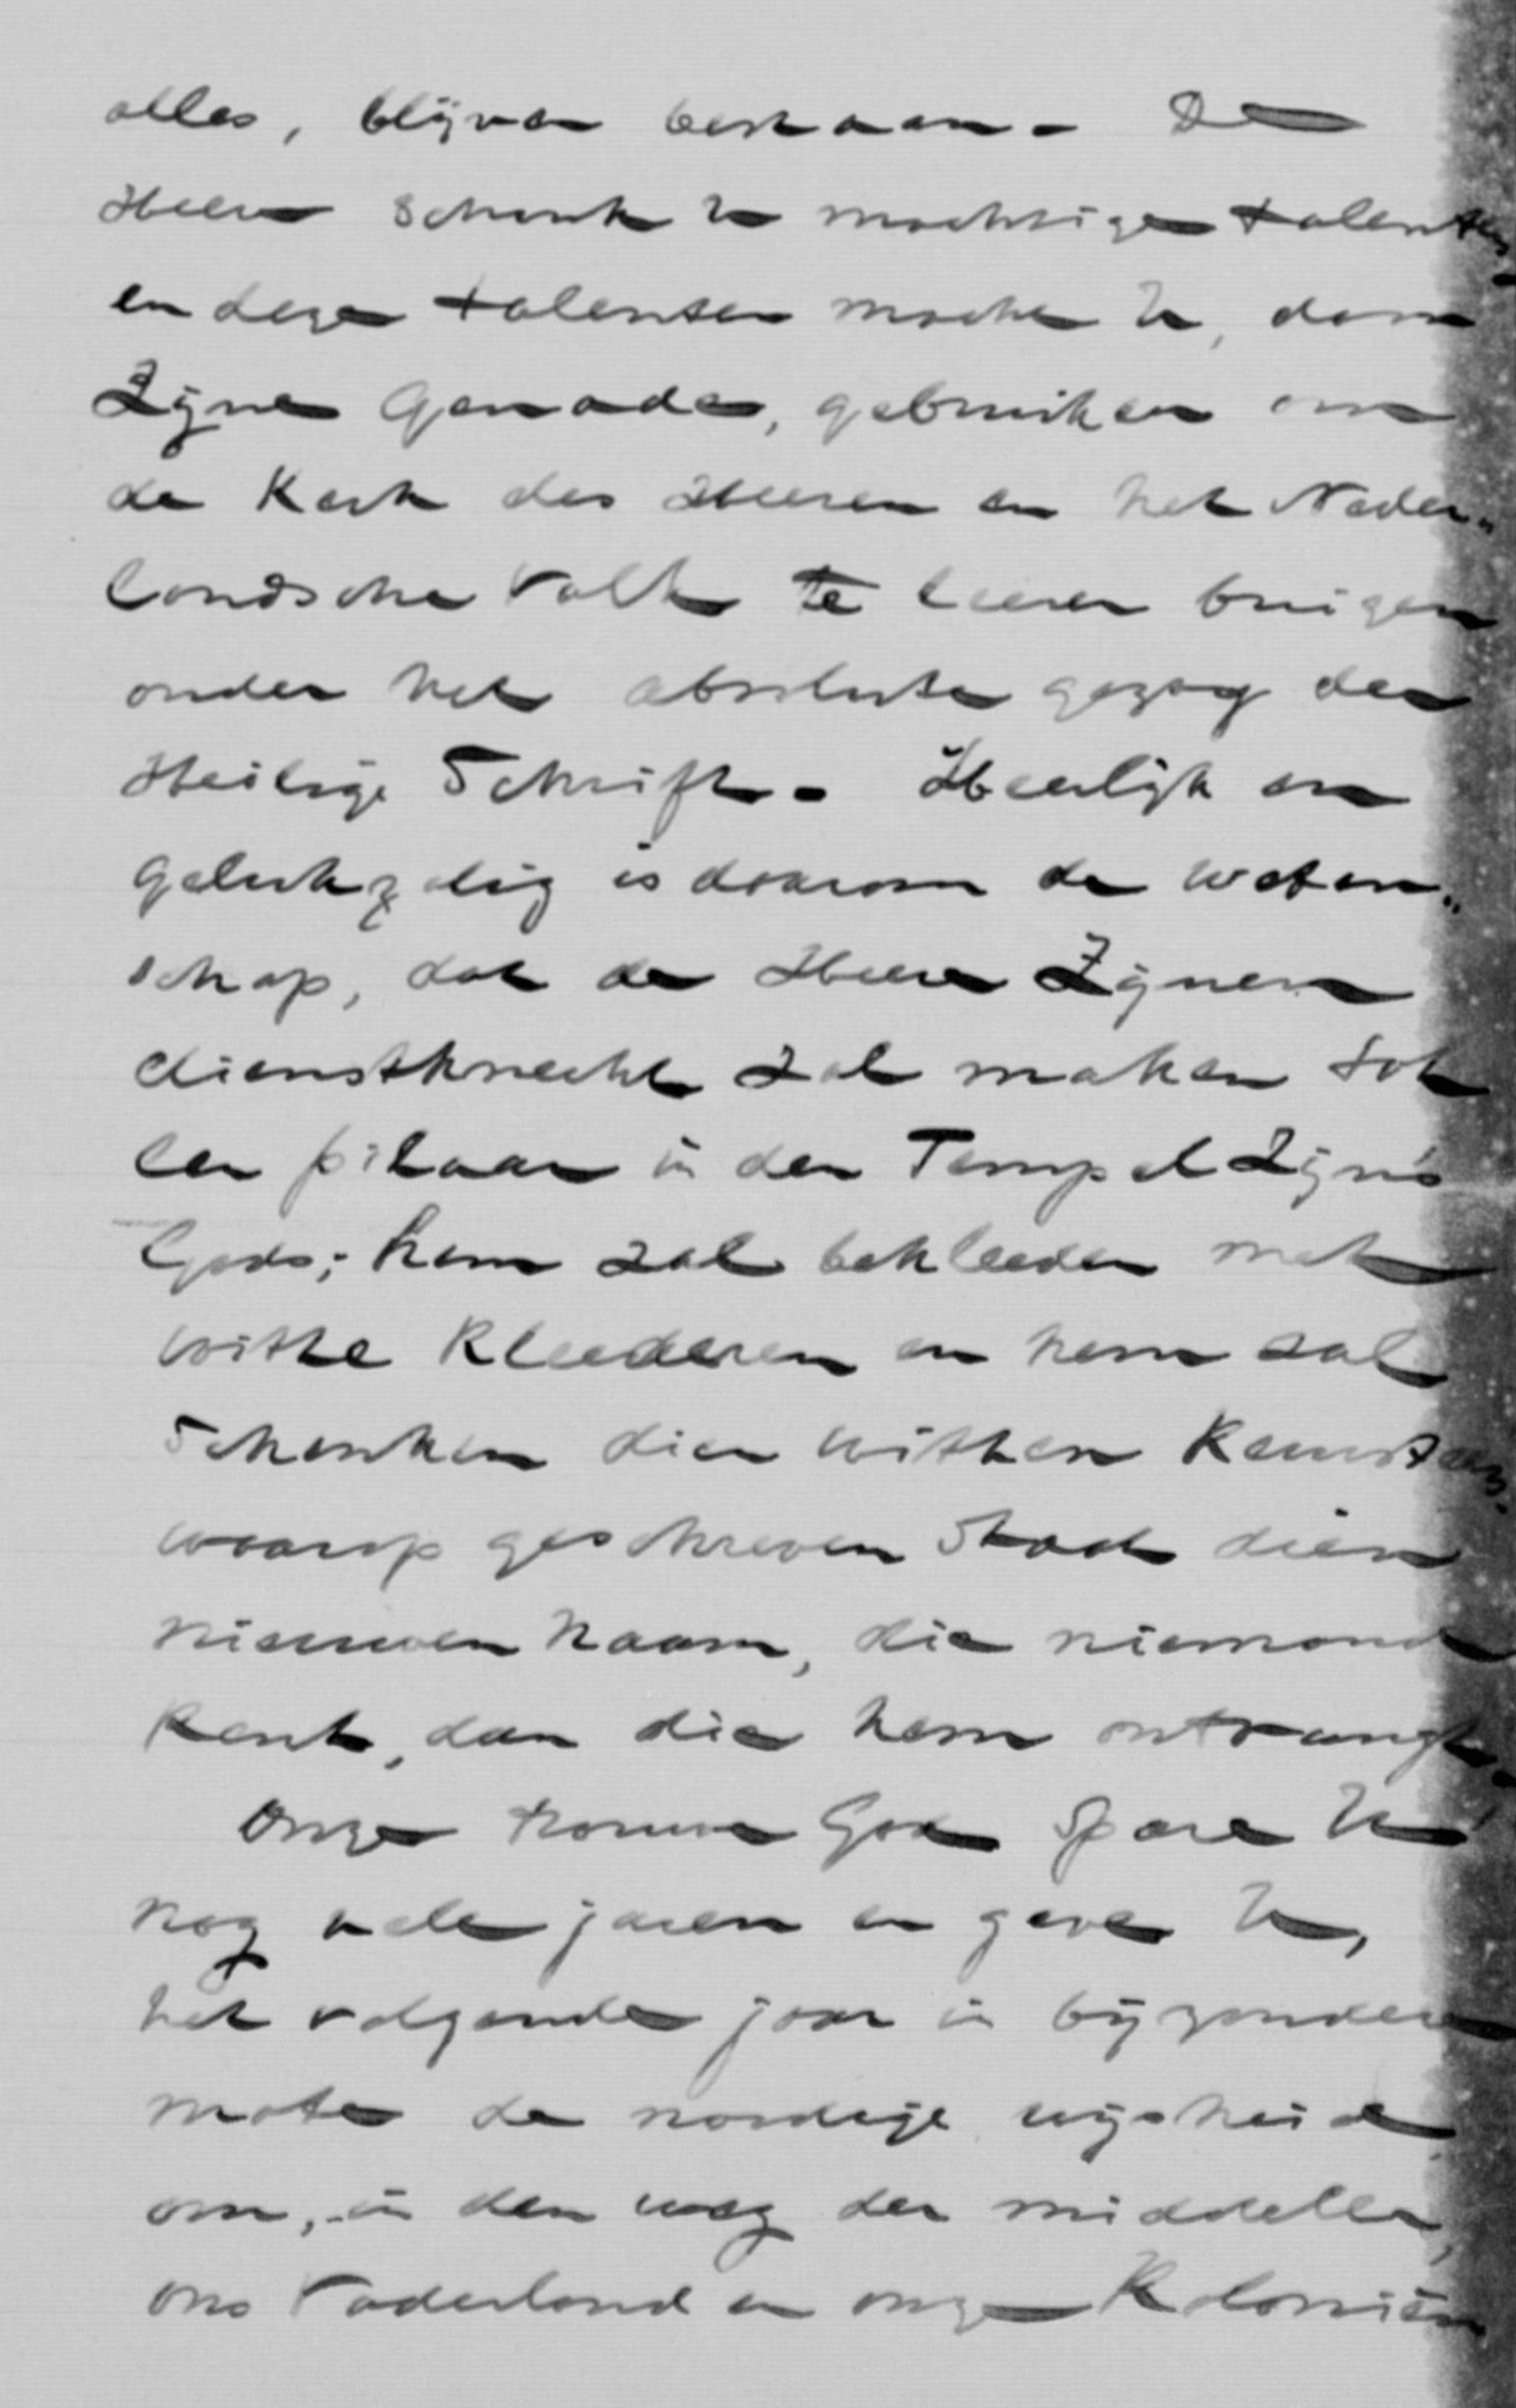 alles, blijven bestaan. De
Heere schenk U machtige talenten,
en deze talenten mocht U, door
Zijne Genade, gebruiken om
de Kerk des Heeren en het Neder„
landsche Volk te leeren buigen
onder het absolute gezag der
Heilige Schrift. Heerlijk en
gelukzalig is daarom de weten„
schap, dat de Heere Zijnen
dienstknecht zal maken tot
een pilaar in den Tempel Zijns
Gods; hem zal bekleeden met
witte kleederen en hem zal
schenken dien witten keursteen,
waarop geschreven staat dien
nieuwen naam, die niemand
kent, dan die hem ontvangt.
Onze trouwe God spare U
nog vele jaren en geve U,
het volgende jaar in bijzondere
mate de noodige wijsheid
om, in den weg der middelen,
ons Vaderland en onze Koloniën